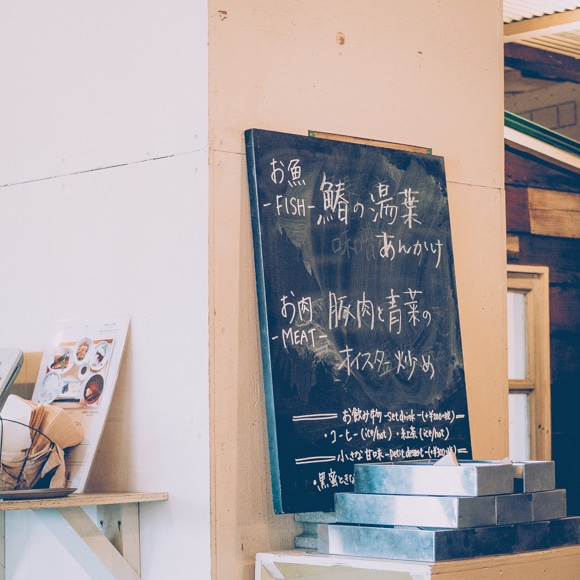 お魚
-FISH-
鰆の湯葉
あんかけ
お肉
-MEAT-
豚肉と青菜の
オイスター炒め
お飲み物 -set drink-(+¥200
・コーヒー(ice/hot) ・紅茶(ice/hot)
小さな甘味 -petit dessert-(+¥300
・黒蜜ときな